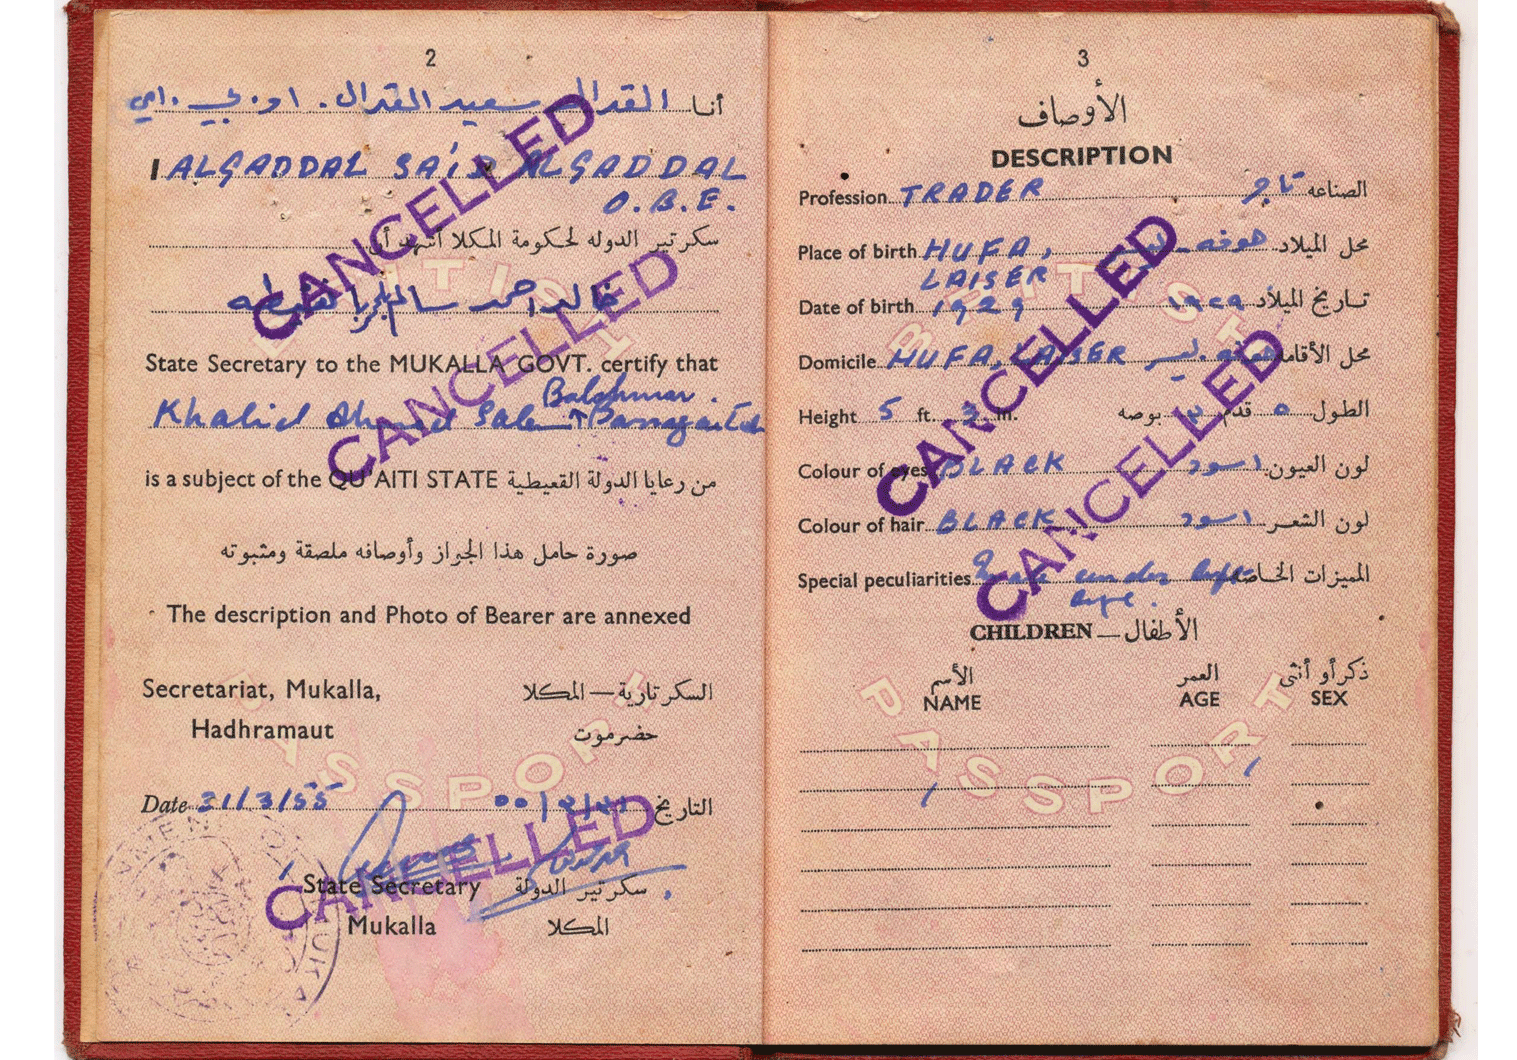 2
أنا القدال سعيد القدال. او. بي. اي
I ALGADDAL SAID ALGADDAL
O.B.E.
سكرتير الدوله لحكومة المكلا أشهد أن
خالد احمد سالم
State Secretary to the MUKALLA GOVT. certify that
Khalid Ahmed Salem
is a subject of the QU'AITI STATE من رعايا الدولة القعيطية
صورة حامل هذا الجراز وأوصافه ملصقة ومثبوته
The description and Photo of Bearer are annexed
Secretariat, Mukalla, السكرتارية — المكلا
Hadhramaut حضرموت
Date 31/3/55 التاريخ ٣١/٣/٥٥
State Secretary سكرتير الدولة
Mukalla المكلا
CANCELLED
CANCELLED
CANCELLED
3
الأوصاف
DESCRIPTION
Profession TRADER تاجر الصناعه
Place of birth HUFA, هوفه محل الميلاد
LAISER
Date of birth 1929 ١٩٢٩ تاريخ الميلاد
Domicile HUFA, LAISER هوفه. ليسر محل الأقامه
Height 5 ft. 3 in. الطول ٥ قدم ٣ بوصه
Colour of eyes BLACK اسود لون العيون
Colour of hair BLACK اسود لون الشعر
Special peculiarities under left المميزات الخاصه
eye.
CHILDREN — الأطفال
الأسم العمر ذكر أو أنثى
NAME AGE SEX
CANCELLED
CANCELLED
BRITISH
PASSPORT